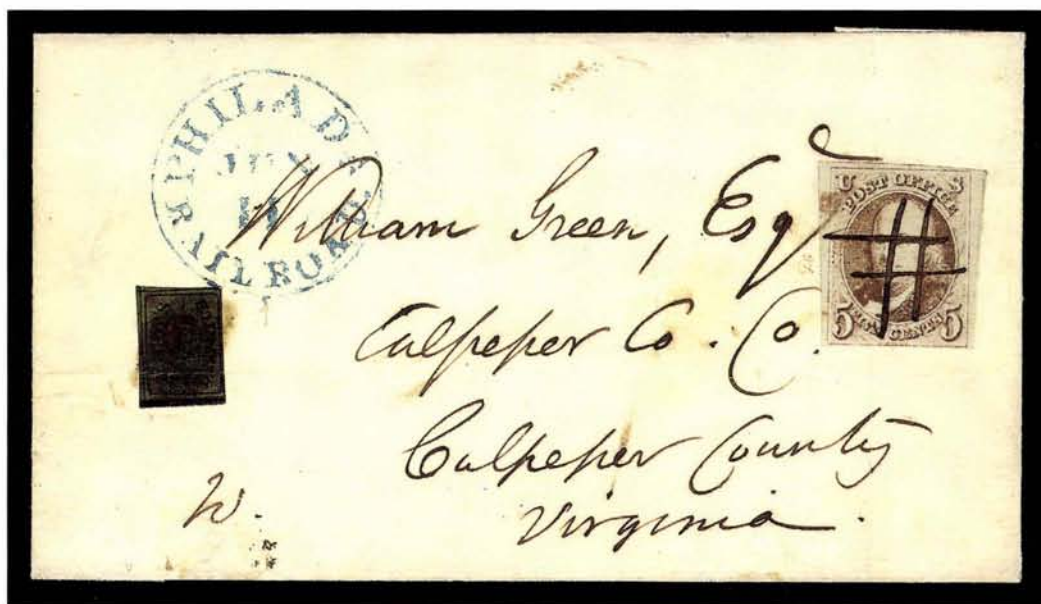 PHILADA RAILROAD
William Green, Esqe
Culpeper Co. Co.
Culpeper County
Virginia.
W.
U S
POST OFFICE
5 FIVE CENTS 5